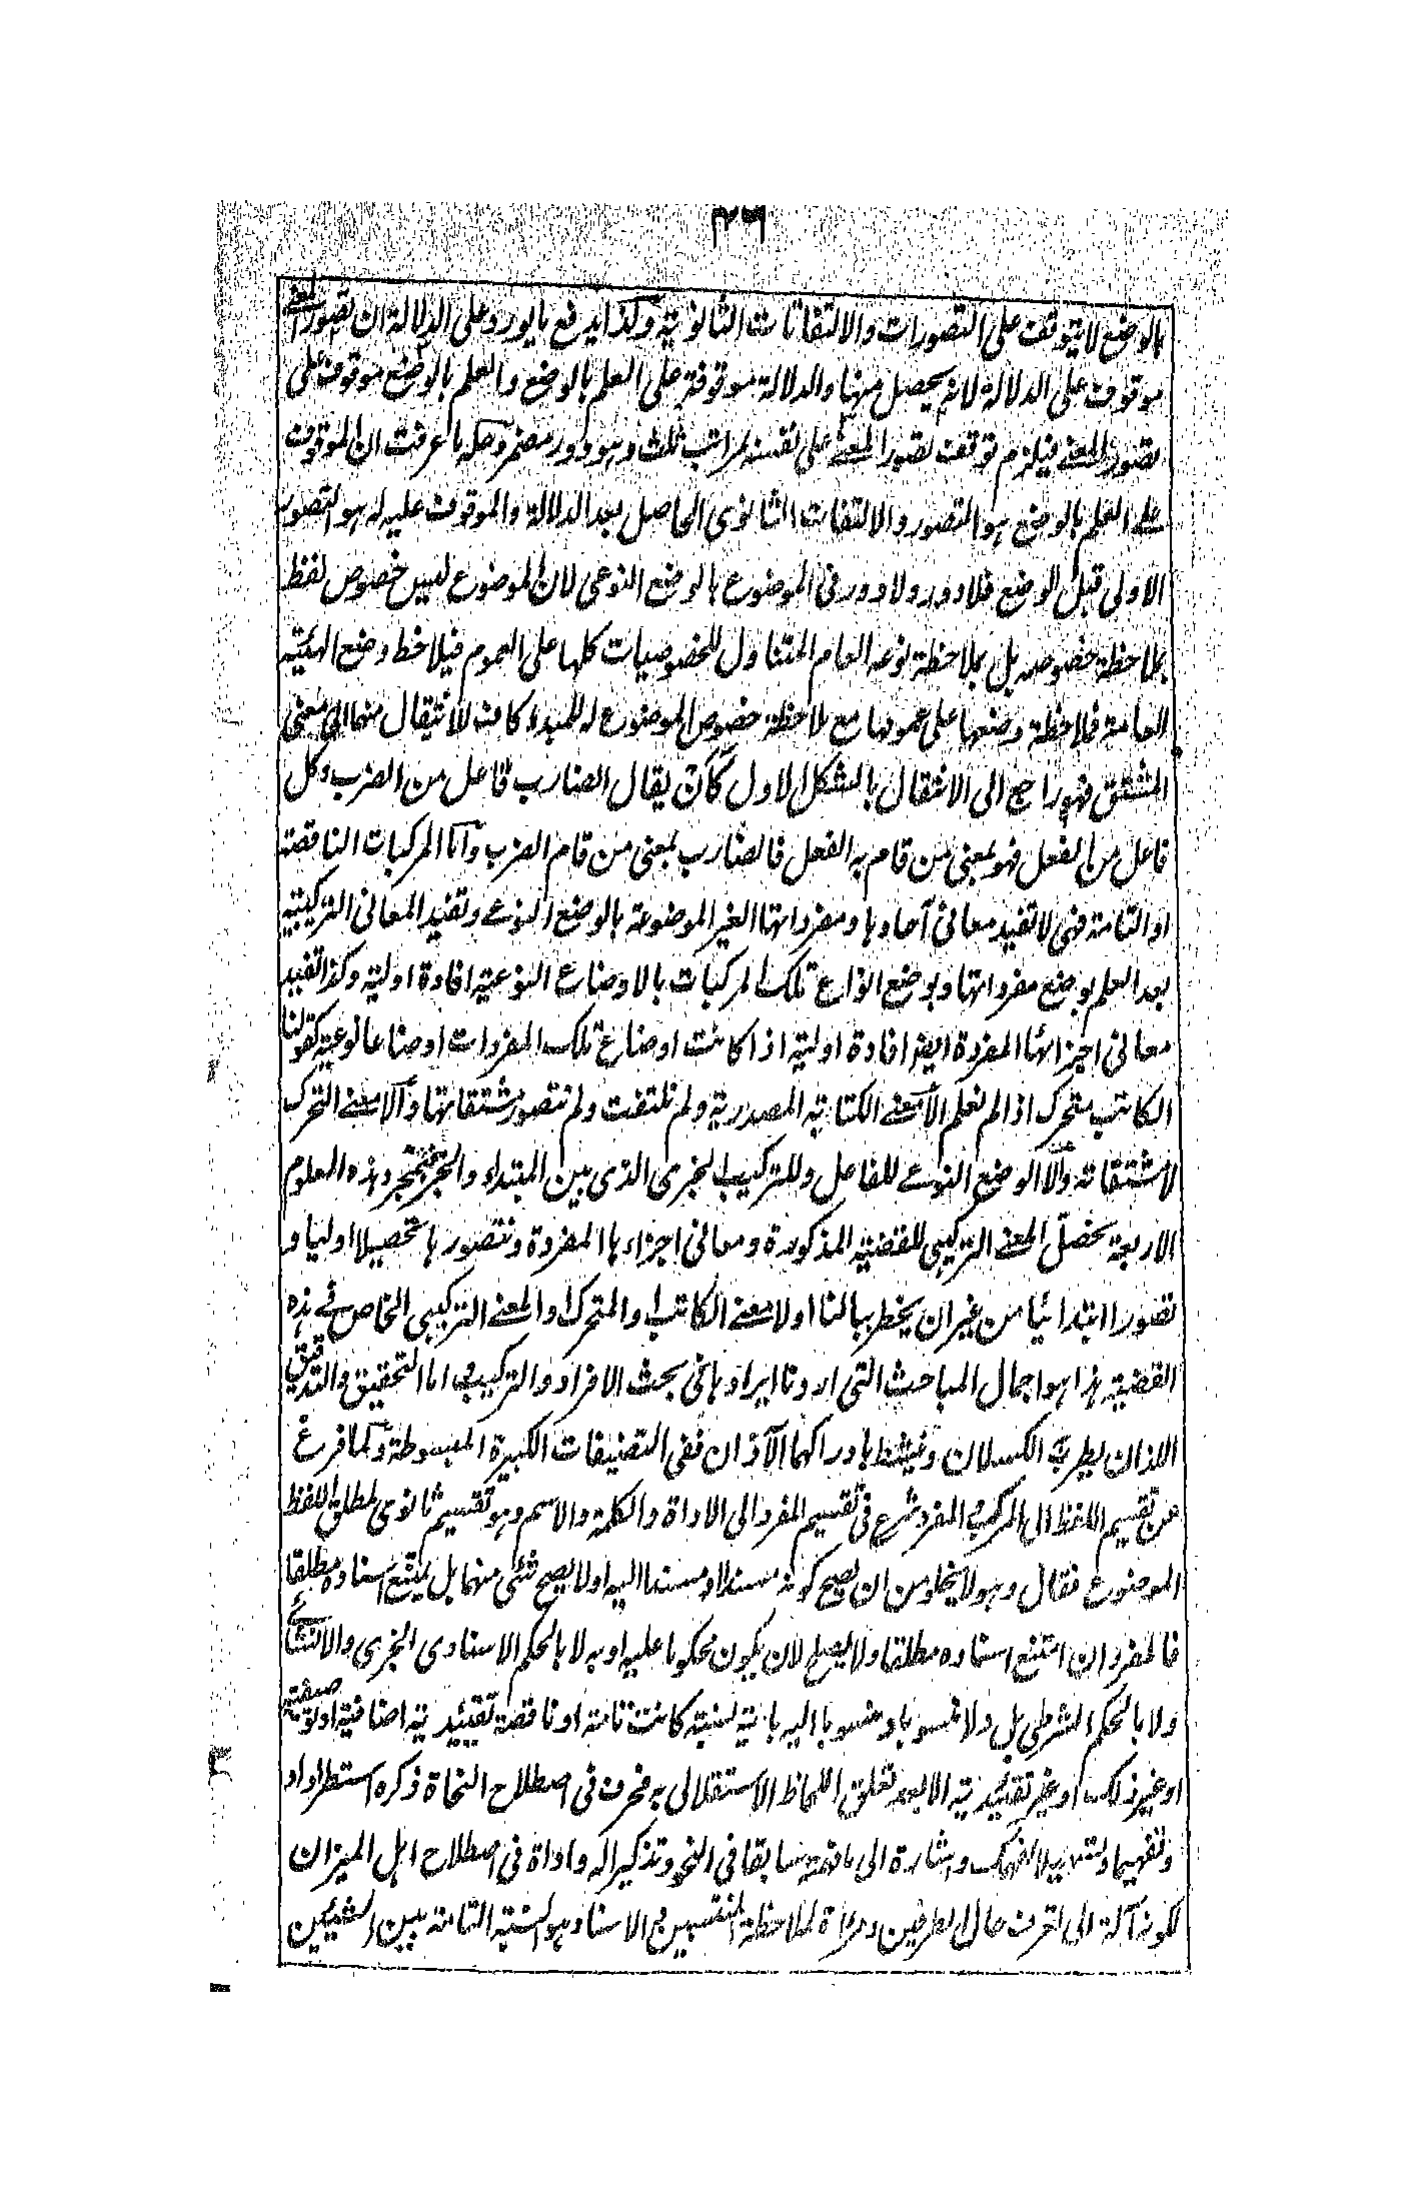 ٢٦
بالوضع لا يتوقف على التصورات والالتفاتات الثانوية وكذا يدفع ما يورد على الدلالة ان تصور المعنے
موقوف على الدلالة لانه يحصل منها والدلالة موقوفة على العلم بالوضع والعلم بالوضع موقوف على
تصور المعنے فيلزم توقف تصور المعنے على نفسه بمراتب ثلث وهو دور مضمر وحله بما عرفت ان الموقوف
علے العلم بالوضع هو التصور والالتفات الثانوى الحاصل بعد الدلالة والموقوف عليه له هو التصور
الاولى قبل الوضع فلا دور ولا دور فى الموضوع بالوضع النوعى لان الموضوع ليس خصوص لفظ
بملاحظة خصوصه بل بملاحظة نوعه العام المتناول للخصوصيات كلها على العموم فيلاحظ وضع الهيئة
العامة فملاحظة وضعها على عمومها مع ملاحظة خصوص الموضوع له للمبداء كافٍ للانتقال منهما الى معنى
المشتق فهو راجع الى الانتقال بالشكل الاول كأن يقال الضارب فاعل من الضرب وكل
فاعل من الفعل فهو بمعنى من قام به الفعل فالضارب بمعنى من قام الضرب واما المركبات الناقصة
او التامة فهى لا تفيد معانى آحادها ومفرداتها الغير الموضوعة بالوضع النوعے وتفيد المعانى التركيبية
بعد العلم بوضع مفرداتها وبوضع انواع تلك المركبات بالاوضاع النوعية افادة اولية وكذا تفيد
معانى اجزائها المفردة ايضا افادة اولية اذا كانت اوضاع تلك المفردات اوضاعا نوعية كقولنا
الكاتب متحرك اذا لم نعلم الا معنے الكتابة المصدرية ولم نلتفت ولم نتصور مشتقاتها والا معنے التحرك
لا مشتقاته والا الوضع النوعے للفاعل وللتركيب الخبرى الذى بين المبتداء والخبر فبمجرد هذه العلوم
الاربعة يحصل المعنے التركيبى للقضية المذكورة ومعانى اجزاءها المفردة ونتصورها تحصيلا اوليا و
تصورا ابتدائيا من غير ان يخطر ببالنا اولا معنے الكاتب والمتحرك والمعنے التركيبى الخاص فے هذه
القضية هذا هو اجمال المباحث التى اردنا ايرادها فى بحث الافراد والتركيب اما التحقيق والتدقيق
اللذان يطرب الكسلان وينشط بادراكهما الآذان ففى التصنيفات الكبيرة المبسوطة ولما فرغ
عن تقسيم اللفظ الى المركب والمفرد شرع فى تقسيم المفرد الى الاداة والكلمة والاسم وهو تقسيم ثانوى لمطلق اللفظ
الموضوع فقال وهو لا يخلو من ان يصح كونه مسندا او مسندا اليه او لا يصح شئى منهما بل يمتنع اسناده مطلقا
فالمفرد ان امتنع اسناده مطلقا ولا يصلح لان يكون محكوما عليه او به لا بالحكم الاسنادى الخبرى والانشائے
ولا بالحكم الشرطى بل ولا منسوبا ومنسوبا اليه باية نسبة كانت تامة او ناقصة تقييدية اضافية او توصيفية
او غير ذلك او غير تقييدية الا بعد تعلق اللحاظ الاستقلالى به فحرف فى اصطلاح النحاة ذكره استطرادا
وتفهيما وتسهيلا لفهمك واشارة الى ما فهمته سابقا فى النحو وتذكيرا له واداة فى اصطلاح اهل الميزان
لكونه آلة الى تعرف حال الطرفين ومرآة لملاحظة المنتسبين فى الاسناد وهو النسبة التامة بين الشيئين